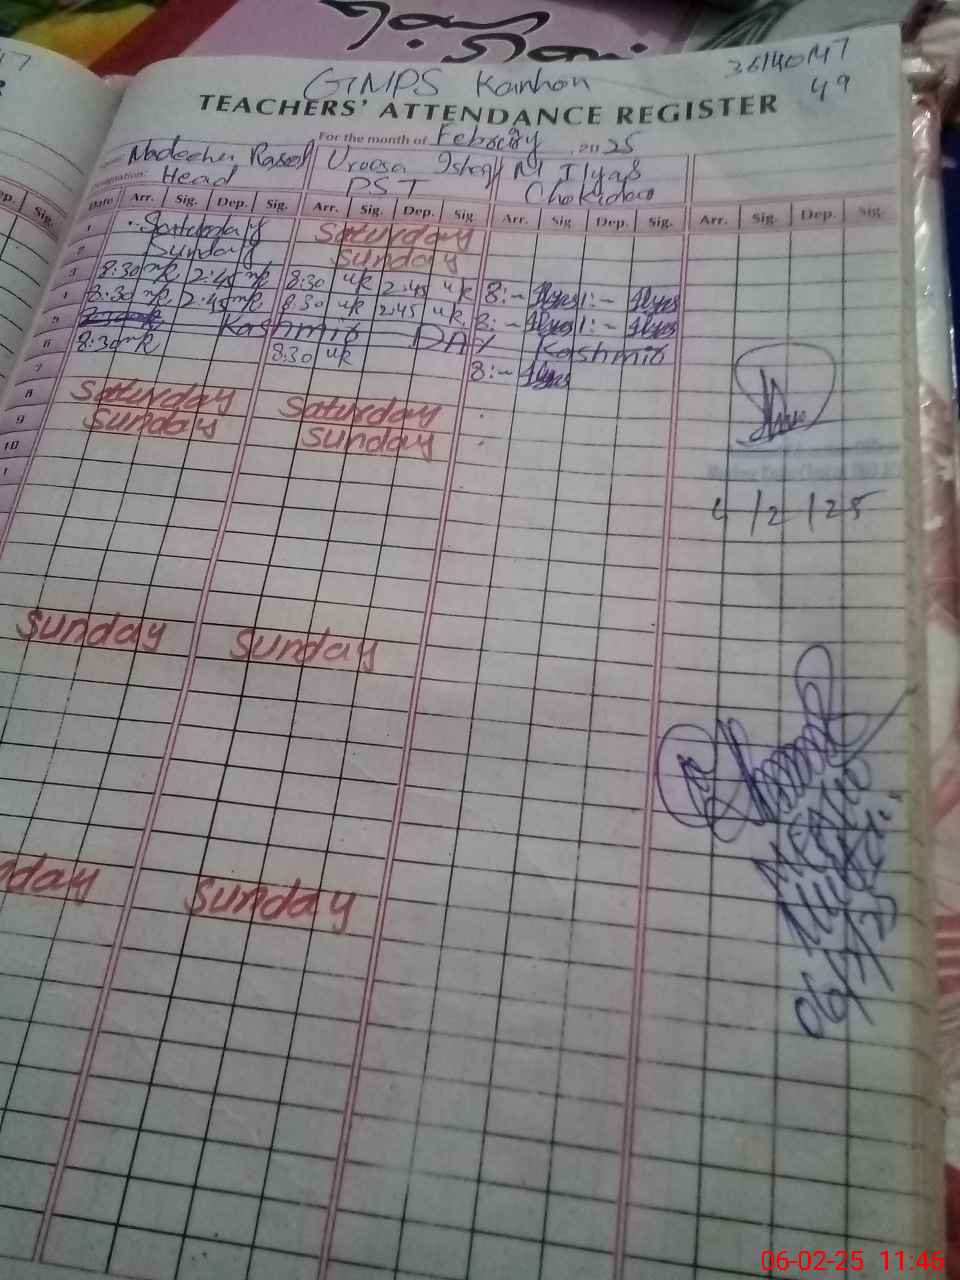 GMPS Kanhon
3614047
49
TEACHERS' ATTENDANCE REGISTER
For the month of February 2025
Nadeeha Rasool Uroosa Ishaq M Ilyas
Designation: Head PST Chokidar
Date Arr. Sig. Dep. Sig. Arr. Sig. Dep. Sig. Arr. Sig. Dep. Sig. Arr. Sig. Dep. Sig.
1 Saturday Saturday
2 Sunday Sunday
3 8:30 2:45 8:30 uk 2:45 uk 8:- Ilyas 1:- Ilyas
4 8:30 2:45 8:30 uk 2:45 uk 8:- Ilyas 1:- Ilyas
5 Kashmir DAY Kashmir
6 8:30 8:30 uk 8:- Ilyas
7
8 Saturday Saturday
9 Sunday Sunday
10
4/2/25
Sunday Sunday
nday Sunday
06-02-25 11:46